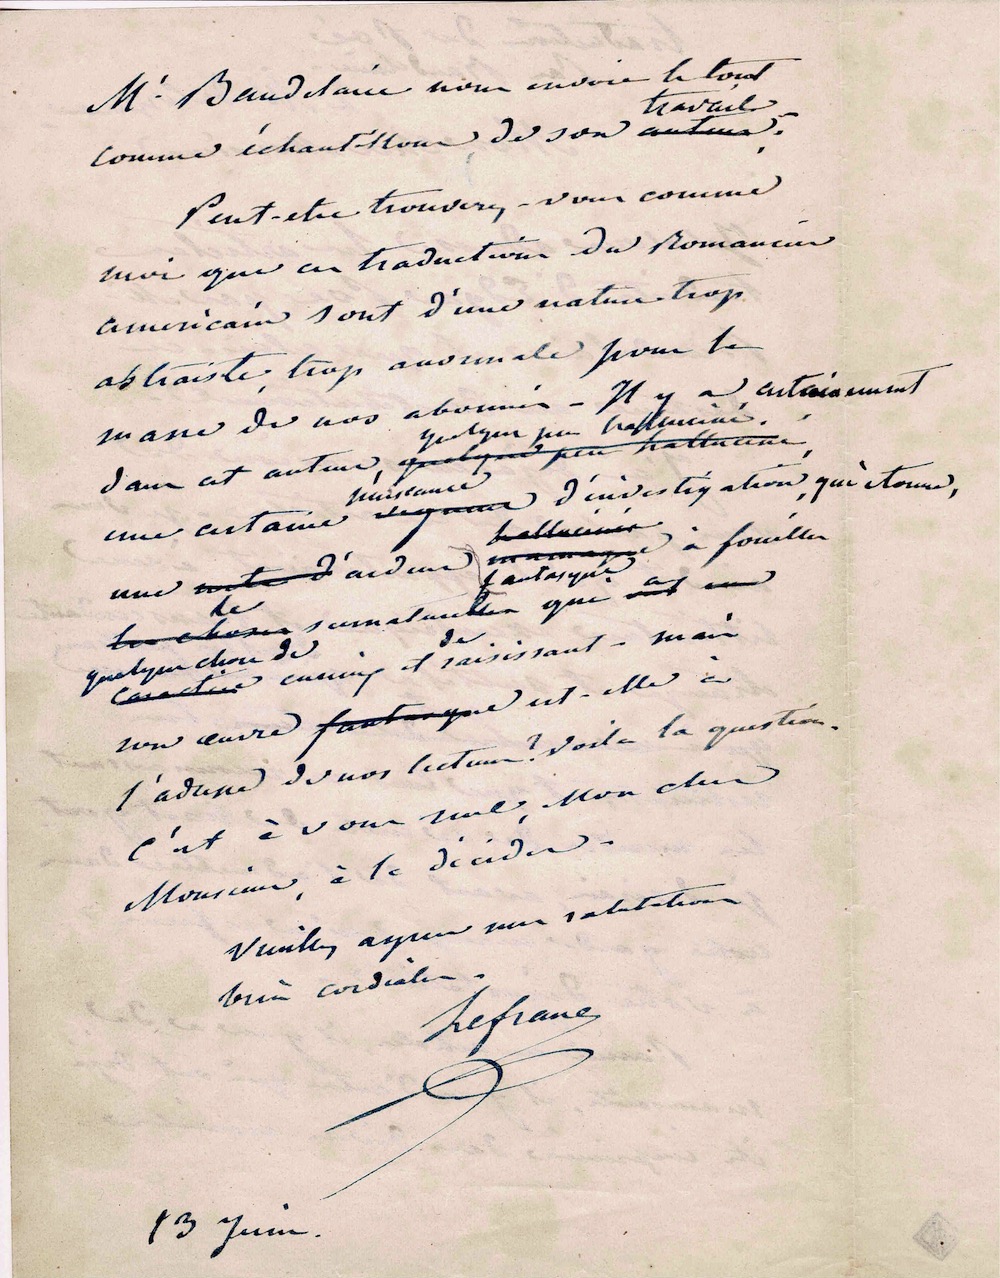 Mr. Baudelaire nous envoie le tout
travail
comme échantillon, de son auteur.
Peut-etre trouverez-vous comme
moi que ces traductions du Romancier
américain sont d'une nature trop
abstraite, trop anormale pour la
masse de nos abonnés - Il y a certainement
quelque peu halluciné,
dans cet auteur, quelque peu halluciné,
puissance
une certaine vigueur d'investigation, qui étonne,
hallucinée
une sorte d'ardeur maniaque à fouiller
fantasque
le
les choses surnaturelles qui ont un
quelque chose de de
caractère curieux et saisissant - mais
son œuvre fantasque est-elle à
l'adresse de nos lecteurs? Voilà la question.
C'est à vous seul, Mon cher
Monsieur, à la décider.
Veuillez agréer mes salutations
bien cordiales.
Lefranc
13 Juin.